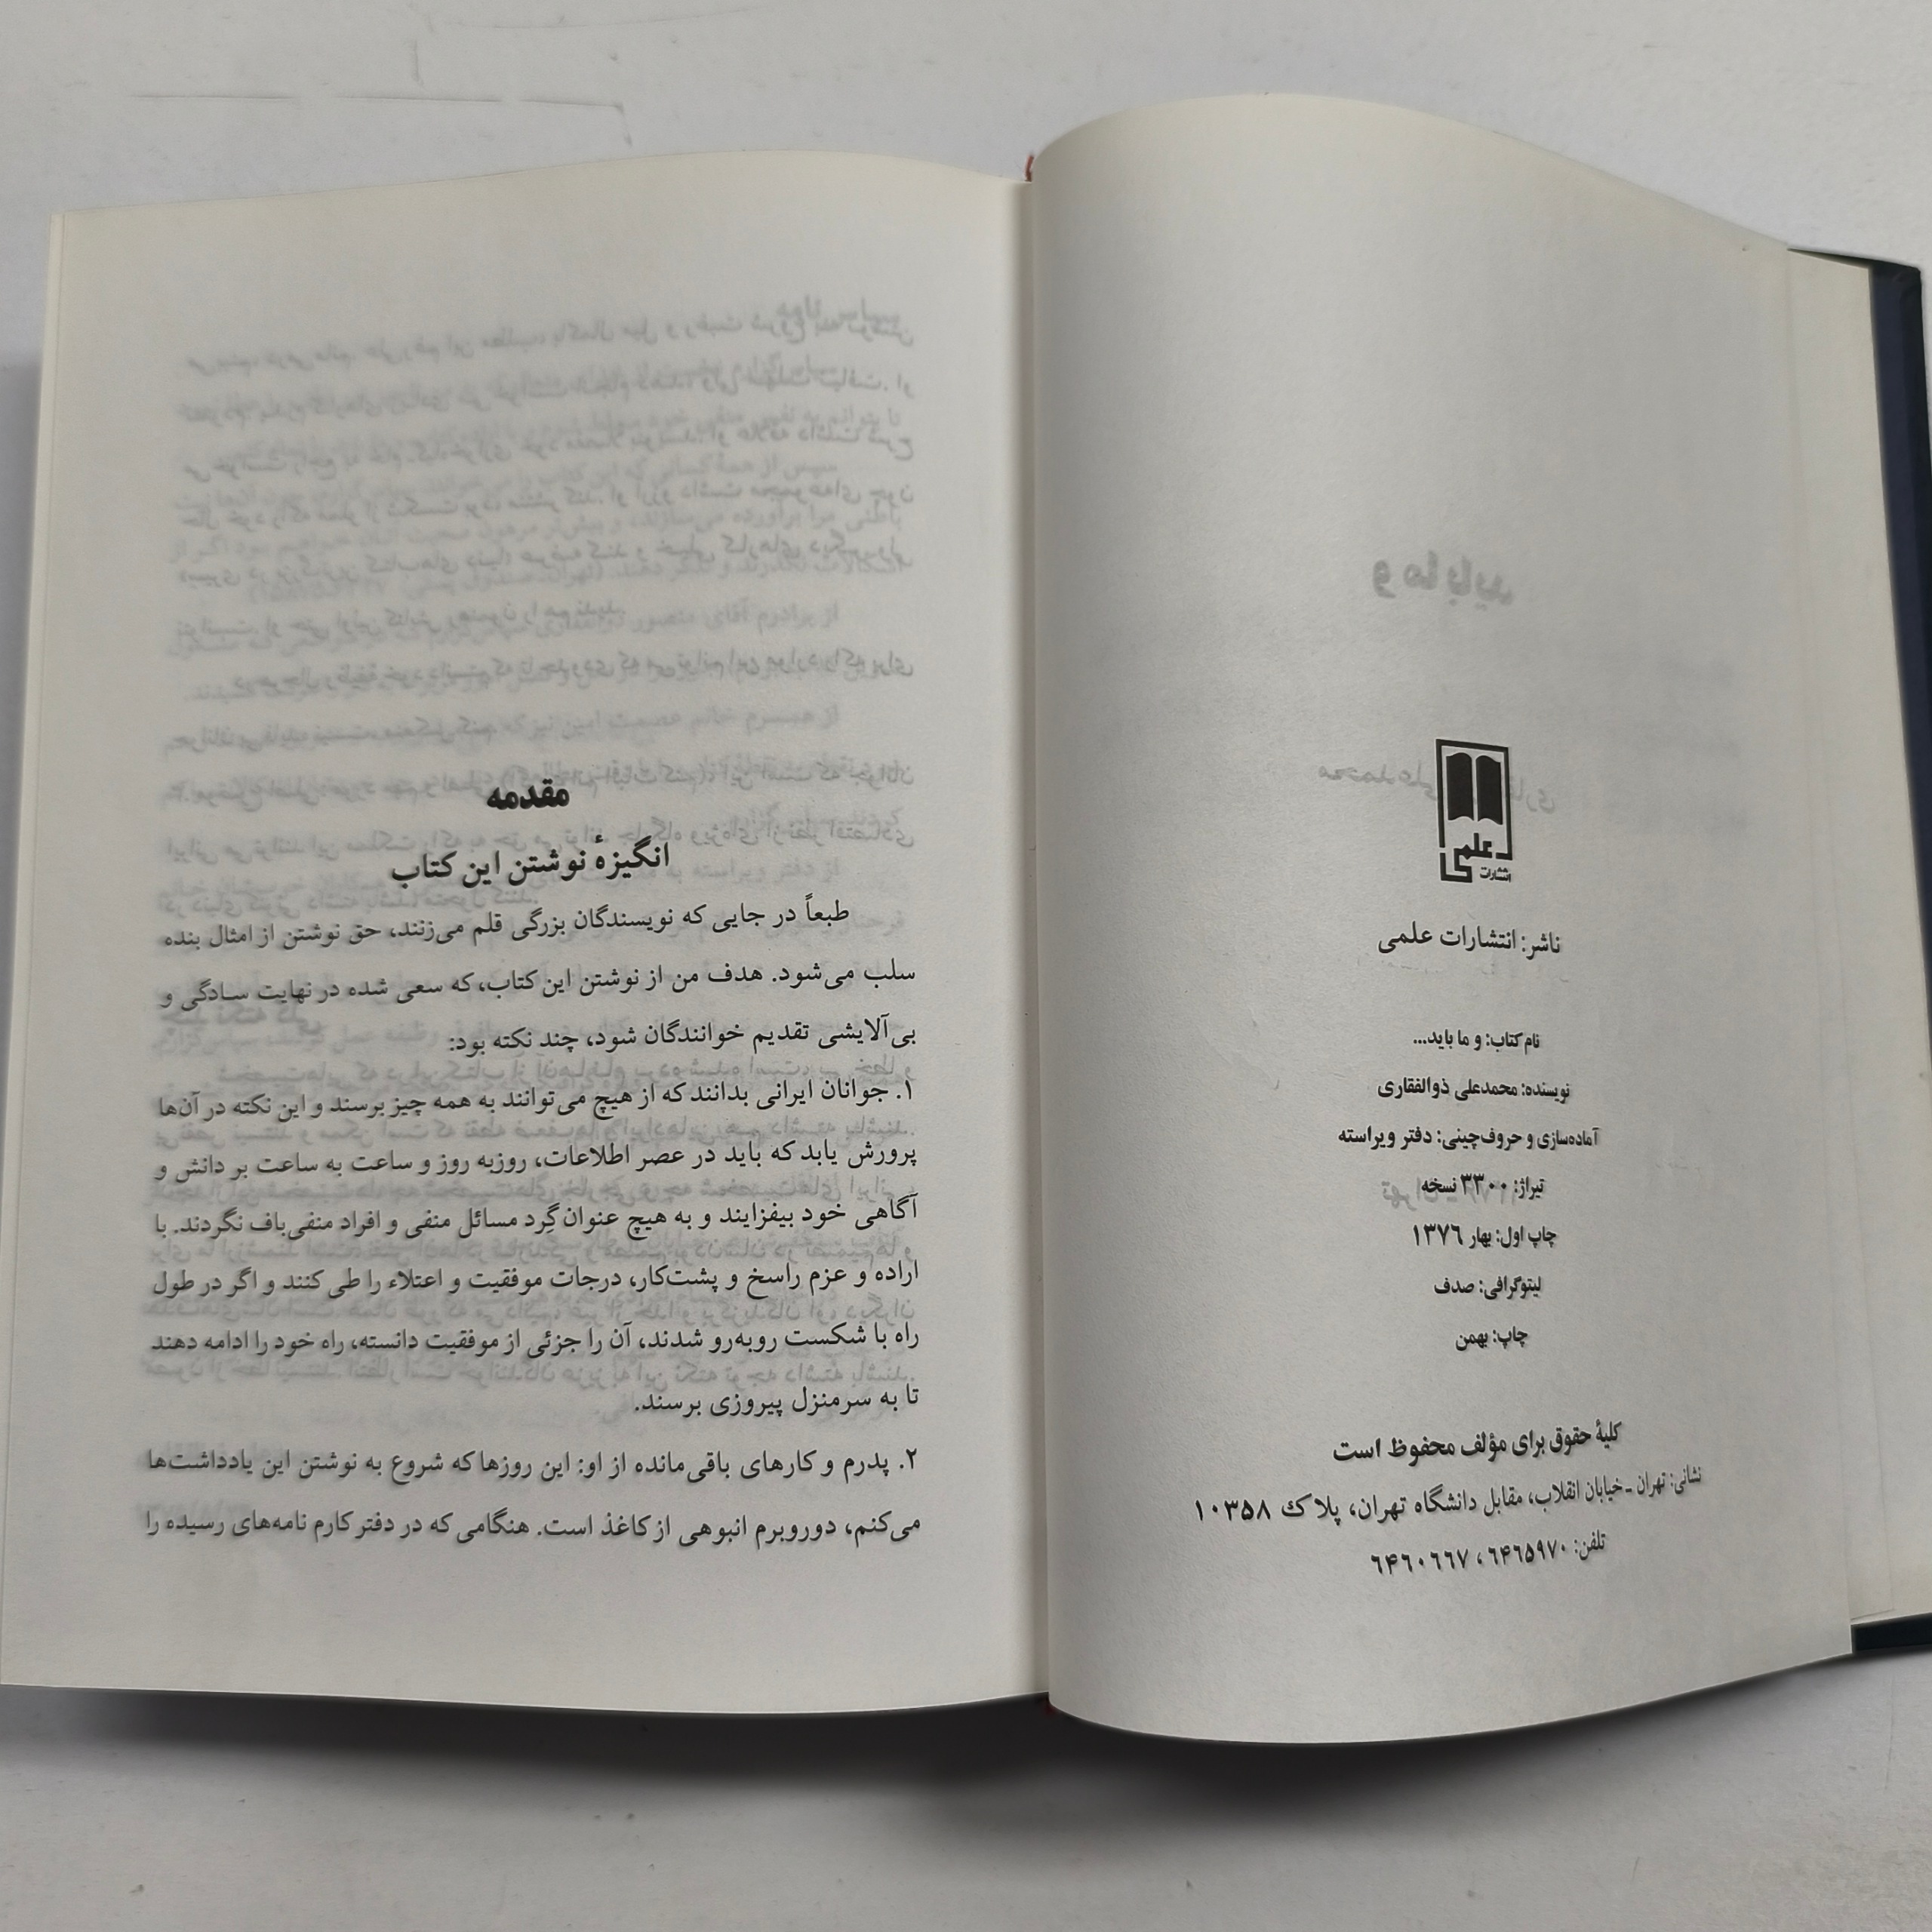 علمی
انتشارات
ناشر: انتشارات علمی
نام کتاب: و ما باید...
نویسنده: محمدعلی ذوالفقاری
آماده‌سازی و حروف‌چینی: دفتر ویراسته
تیراژ: ۳۳۰۰ نسخه
چاپ اول: بهار ۱۳۷۶
لیتوگرافی: صدف
چاپ: بهمن
کلیهٔ حقوق برای مؤلف محفوظ است
نشانی: تهران ـ خیابان انقلاب، مقابل دانشگاه تهران، پلاک ۱۰۳۵۸
تلفن: ۶۴۶۵۹۷۰ ، ۶۴۶۰۶۶۷
مقدمه
انگیزهٔ نوشتن این کتاب
طبعاً در جایی که نویسندگان بزرگی قلم می‌زنند، حق نوشتن از امثال بنده
سلب می‌شود. هدف من از نوشتن این کتاب، که سعی شده در نهایت سادگی و
بی‌آلایشی تقدیم خوانندگان شود، چند نکته بود:
۱. جوانان ایرانی بدانند که از هیچ می‌توانند به همه چیز برسند و این نکته در آن‌ها
پرورش یابد که باید در عصر اطلاعات، روزبه روز و ساعت به ساعت بر دانش و
آگاهی خود بیفزایند و به هیچ عنوان گِرد مسائل منفی و افراد منفی‌باف نگردند. با
اراده و عزم راسخ و پشت‌کار، درجات موفقیت و اعتلاء را طی کنند و اگر در طول
راه با شکست روبه‌رو شدند، آن را جزئی از موفقیت دانسته، راه خود را ادامه دهند
تا به سرمنزل پیروزی برسند.
۲. پدرم و کارهای باقی‌مانده از او: این روزها که شروع به نوشتن این یادداشت‌ها
می‌کنم، دوروبرم انبوهی از کاغذ است. هنگامی که در دفتر کارم نامه‌های رسیده را